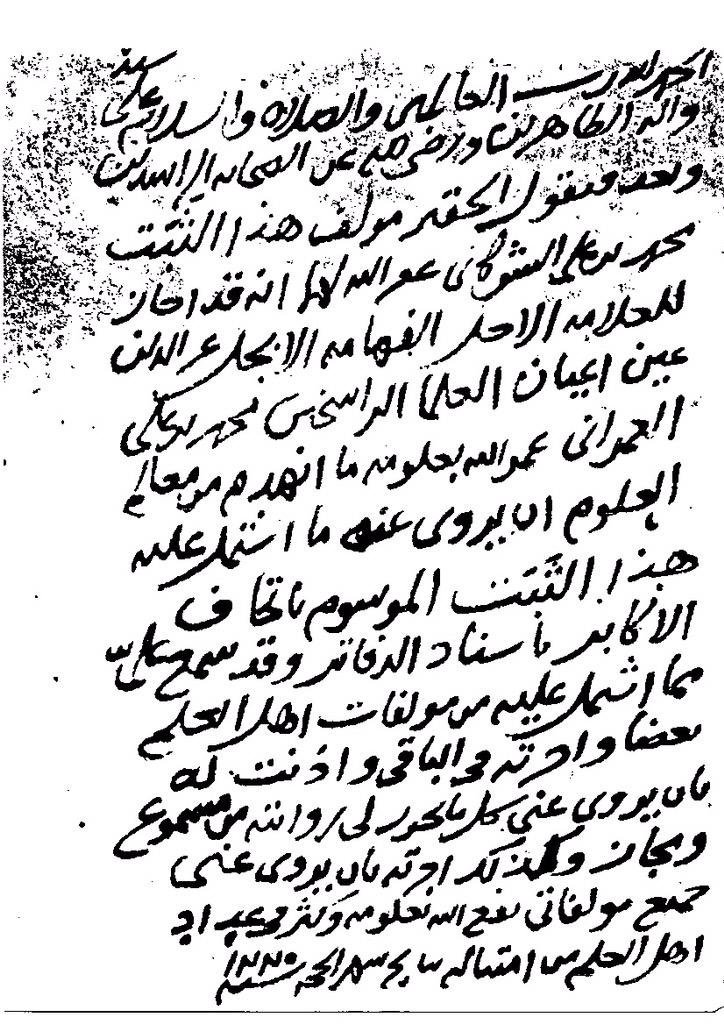 الحمد لله رب العالمين والصلاة والسلام على سيدنا
واله الطاهرين ورضي الله عن الصحابه الراشدين
وبعد فيقول الحقير مولف هذا الثبت
محمد بن علي الشوكاني غفر الله لهما انه قد اجاز
للعلامه الاجل الفهامه الابجل عز الدين
عين اعيان العلما الراسخين محمد بن علي
العمراني عمر الله بعلومه ما انهدم من معالم
العلوم ان يروى عنه ما اشتمل عليه
هذا الثبت الموسوم باتحاف
الاكابر باسناد الدفاتر وقد سمع علي
مما اشتمل عليه من مولفات اهل العلم
بعضا واجزته في الباقي واذنت له
بان يروى عني كل ما يجوز لي روايته من مسموع
ومجاز وكذلك اجزته بان يروى عني
جميع مولفاتي نفع الله بعلومه وكثر في عباده
اهل العلم من امثاله شهر الحجة سنة ١٢٢٥